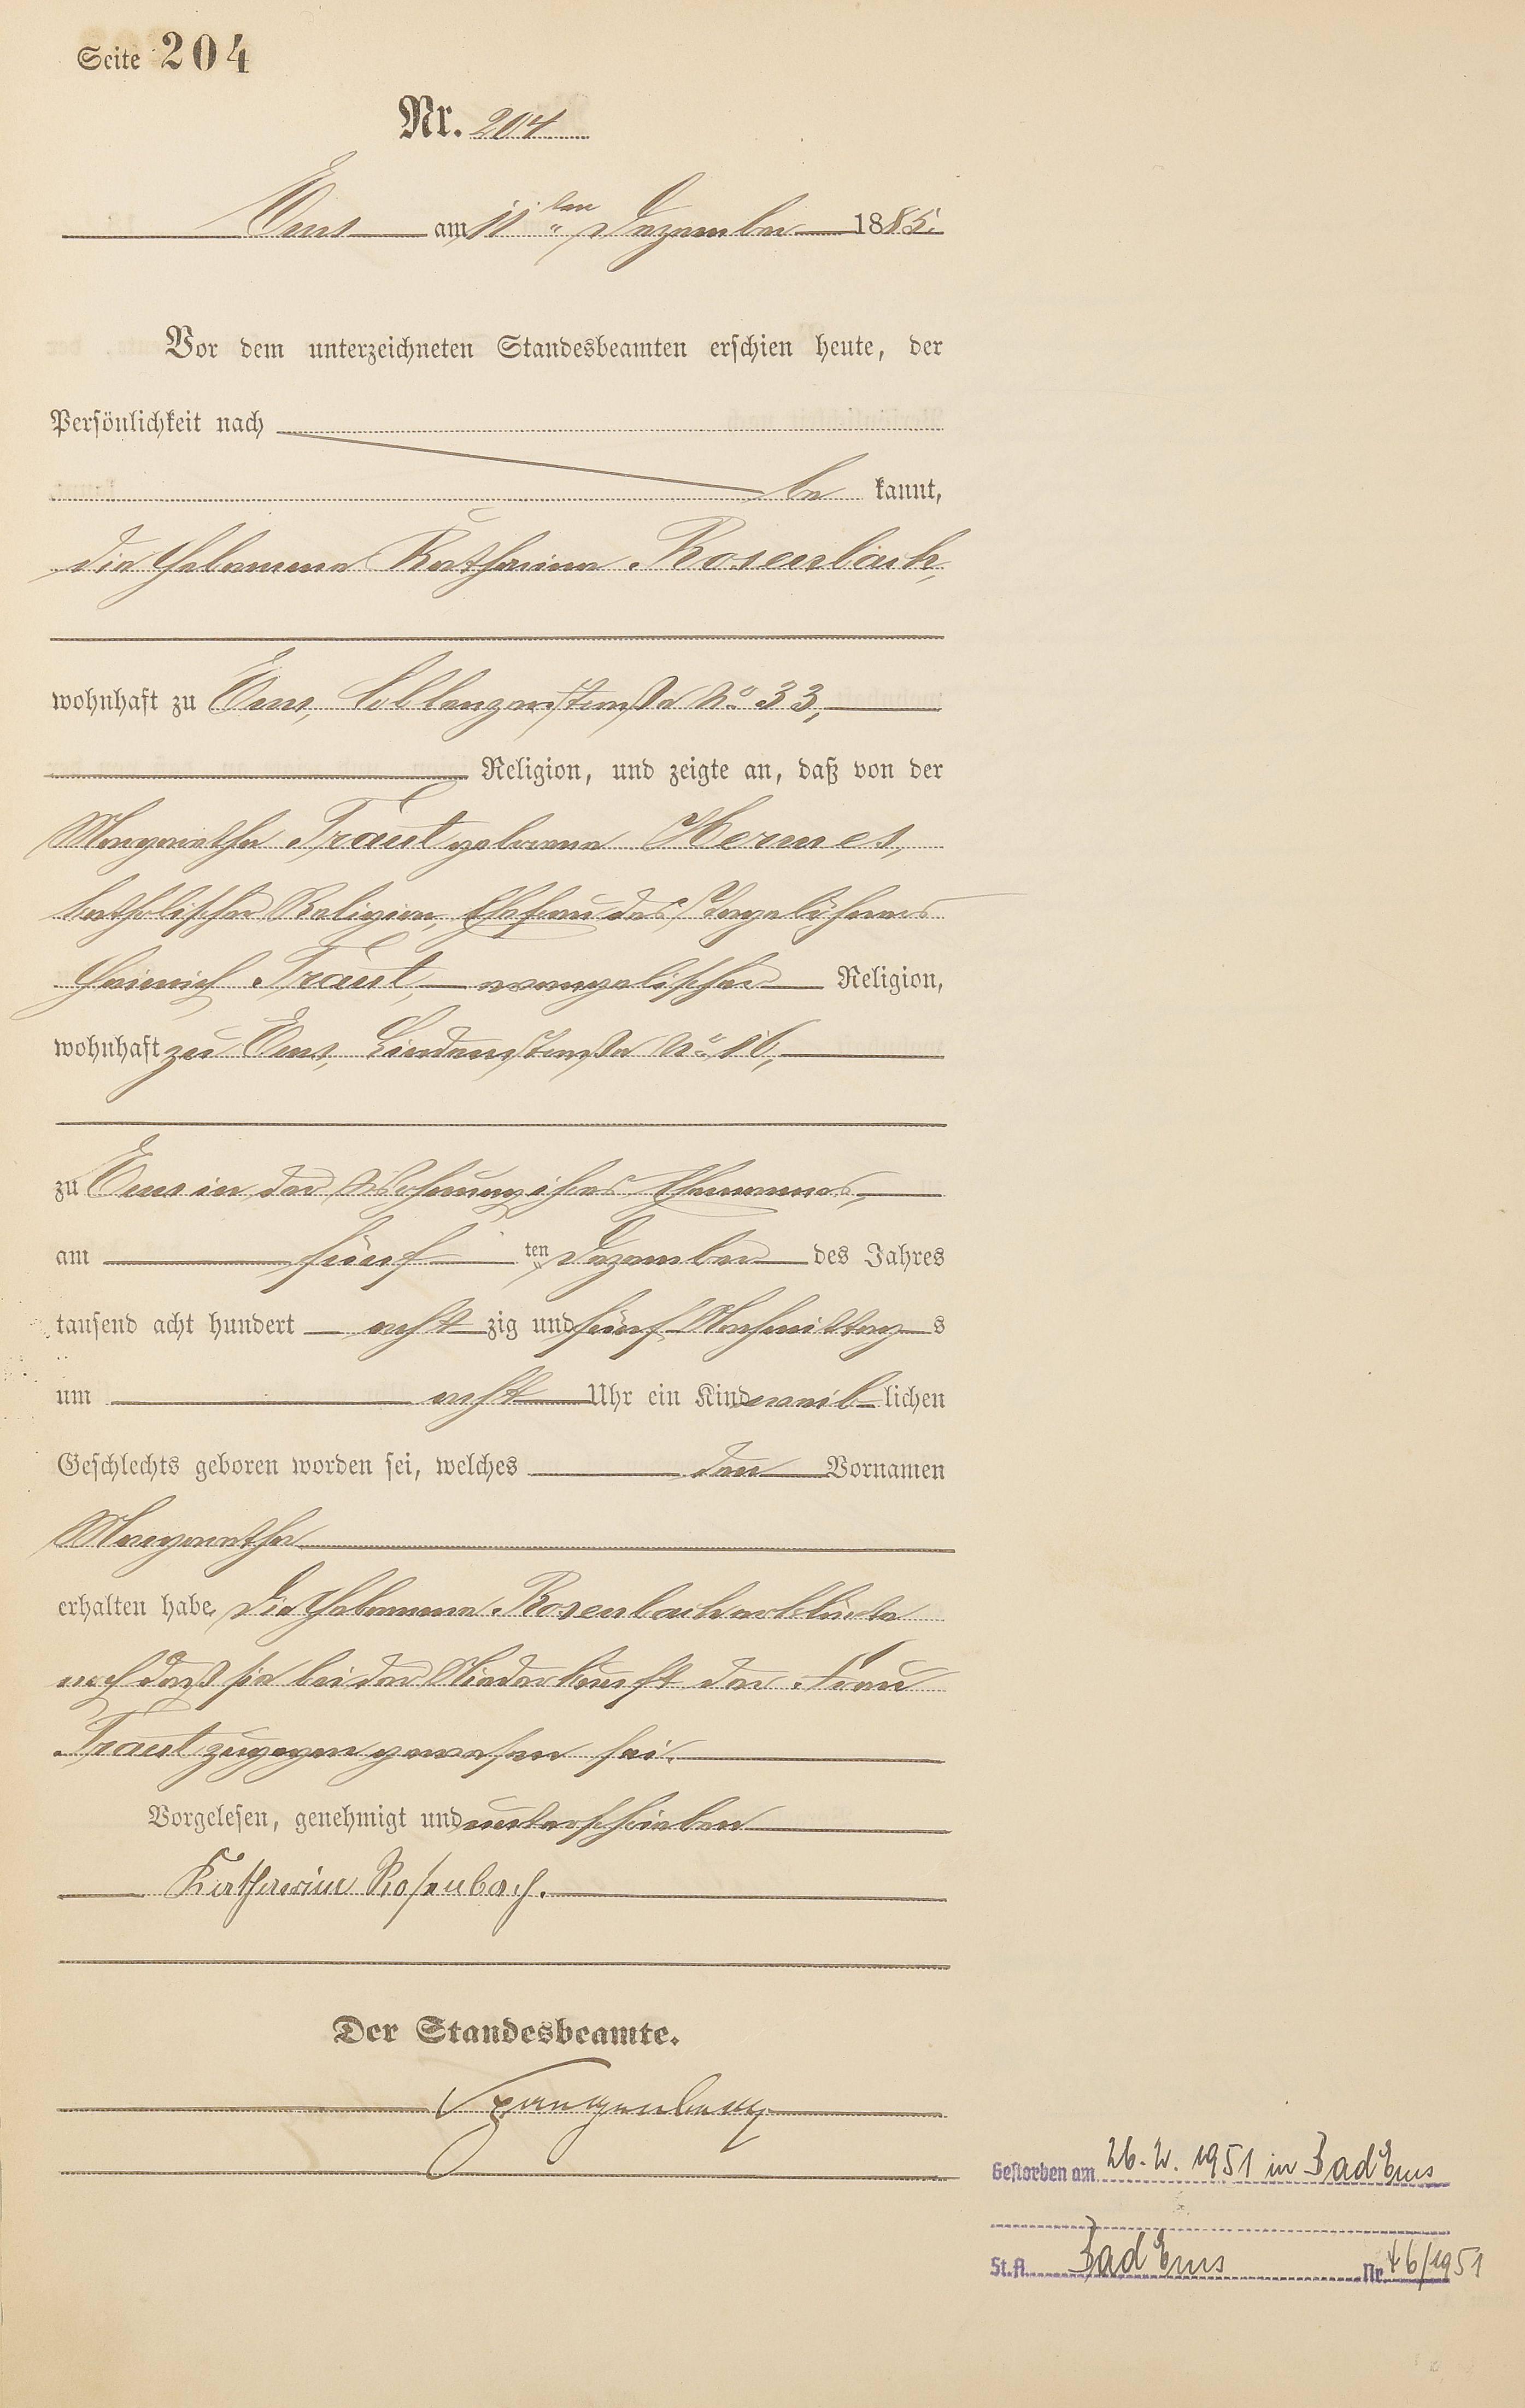 Seite 204
Nr. 204
Ems am 11ten Dezember 1885.
Vor dem unterzeichneten Standesbeamten erschien heute, der
Persönlichkeit nach
be kannt,
die Hebamme Katharina Rosenbach,
wohnhaft zu Ems, Coblenzerstraße No 33,
Religion, und zeigte an, daß von der
Margaretha Traut geborene Hermes,
katholischer Religion, Ehefrau des Tagelöhners
Heinrich Traut, evangelischer Religion,
wohnhaft zu Ems, Lindenstraße No 16,
zu Ems in der Wohnung ihres Ehemannes,
am fünf ten Dezember des Jahres
tausend acht hundert acht zig und fünf Nachmittag s
um acht Uhr ein Kind weib lichen
Geschlechts geboren worden sei, welches den Vornamen
Margaretha
erhalten habe. Die Hebamme Rosenbach erklärte
noch daß sie bei der Niederkunft der Frau
Traut zugegen gewesen sei.
Vorgelesen, genehmigt und unterschrieben
Katharina Rosenbach.
Der Standesbeamte.
Spangenberg
Gestorben am 26. 2. 1951 in Bad Ems
St. A. Bad Ems Nr. 46/1951